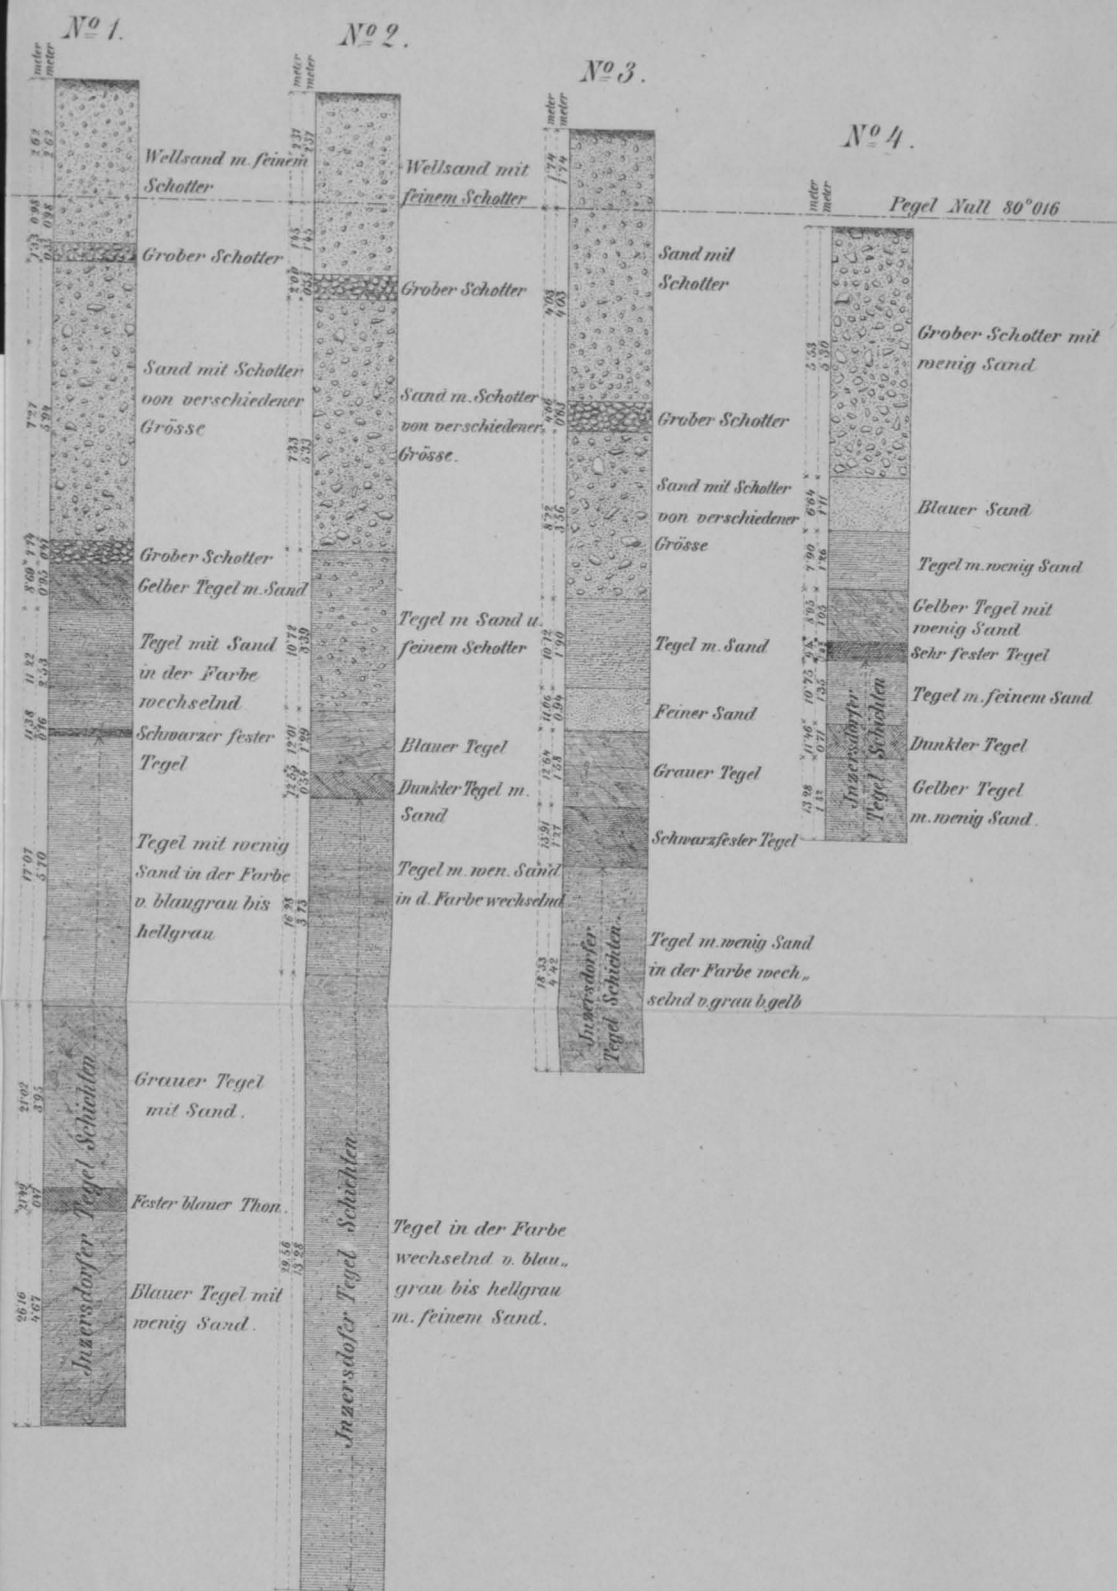 No 1.
meter
meter
2.62
2.62
0.98
0.98
Wellsand m. feinem
Schotter
Grober Schotter
Sand mit Schotter
von verschiedener
Grösse
7.27
5.94
Grober Schotter
Gelber Tegel m. Sand
8.69
0.95
Tegel mit Sand
in der Farbe
wechselnd
11.22
2.53
Schwarzer fester
Tegel
11.38
0.16
Tegel mit wenig
Sand in der Farbe
v. blaugrau bis
hellgrau
17.07
5.70
Grauer Tegel
mit Sand.
21.02
3.95
Fester blauer Thon.
21.49
0.47
Blauer Tegel mit
wenig Sand.
26.16
4.67
Inzersdorfer Tegel Schichten
No 2.
meter
meter
2.37
2.37
Wellsand mit
feinem Schotter
Grober Schotter
Sand m. Schotter
von verschiedener
Grösse.
7.33
5.33
Tegel m Sand u.
feinem Schotter
10.72
3.39
Blauer Tegel
12.01
1.29
Dunkler Tegel m.
Sand
12.55
0.54
Tegel m. wen. Sand
in d. Farbe wechselnd
16.28
3.73
Tegel in der Farbe
wechselnd v. blau„
grau bis hellgrau
m. feinem Sand.
29.56
13.28
Inzersdofer Tegel Schichten
No 3.
meter
meter
1.74
1.74
Sand mit
Schotter
4.03
4.03
Grober Schotter
4.66
0.63
Sand mit Schotter
von verschiedener
Grösse
8.22
3.56
Tegel m. Sand
10.12
1.90
Feiner Sand
11.06
0.94
Grauer Tegel
12.64
1.58
Schwarzfester Tegel
13.91
1.27
Tegel m. wenig Sand
in der Farbe wech„
selnd v. grau b. gelb
18.33
4.42
Inzersdorfer
Tegel Schichten
No 4.
meter
meter
Pegel Null 80°016
Grober Schotter mit
wenig Sand
5.53
5.30
Blauer Sand
6.64
1.11
Tegel m. wenig Sand
7.90
1.26
Gelber Tegel mit
wenig Sand
8.95
1.05
Sehr fester Tegel
Tegel m. feinem Sand
10.75
1.35
Dunkler Tegel
11.46
0.71
Gelber Tegel
m. wenig Sand.
13.28
1.82
Inzersdorfer
Tegel Schichten